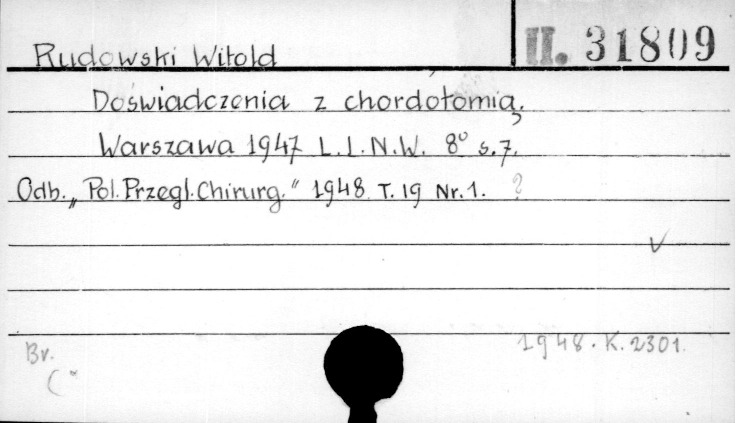 Rudowski Witold
II. 31809
Doświadczenia z chordotomią.
Warszawa 1947 L.I.N.W. 8º s.7.
Odb. „Pol.Przegl.Chirurg." 1948 T.19 Nr.1. ?
1948.K.2301.
Br.